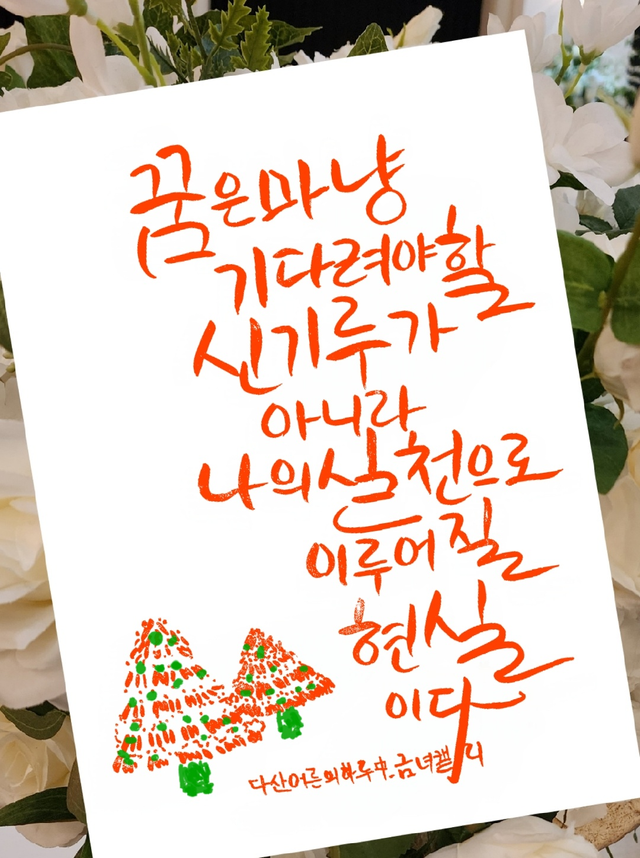 꿈은마냥
기다려야할
신기루가
아니라
나의실천으로
이루어질
현실
이다
다산어른의하루中_금녀캘리